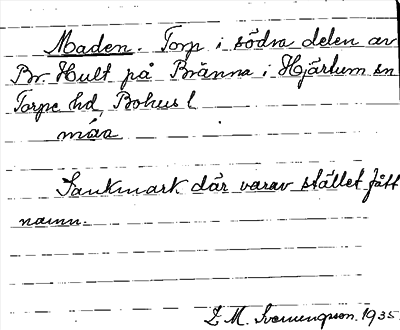 Maden. Torp i södra delen av
Br. Hult på Bränna i Hjärtum sn
Torpe hd, Bohusl
måa
Sankmark där varav stället fått
namn.
M. 1935